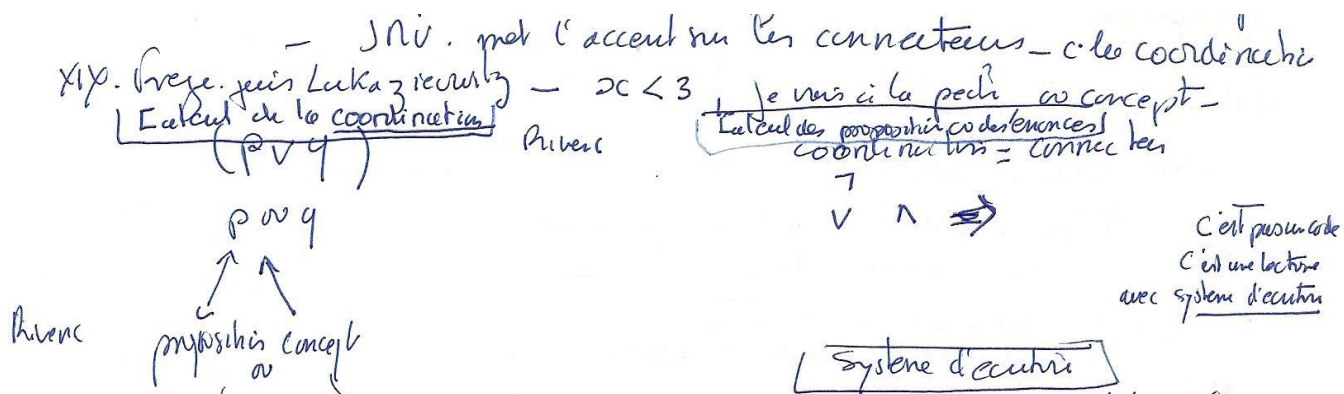 – JNV. met l'accent sur les connecteurs – c. les coordinatio
XIXe. Frege. puis Lukaziewitz – x < 3 je vais à la pech ou concept –
Calcul de la coordination Calcul des propositions ou des énoncés
(p ∨ q) Rivenc coordination = connecteu
¬
p ou q ∨ ∧ ⇒
C'est pas un code
C'est une lecture
avec système d'ecriture
Rivenc proposition concept
ou
Système d'ecriture